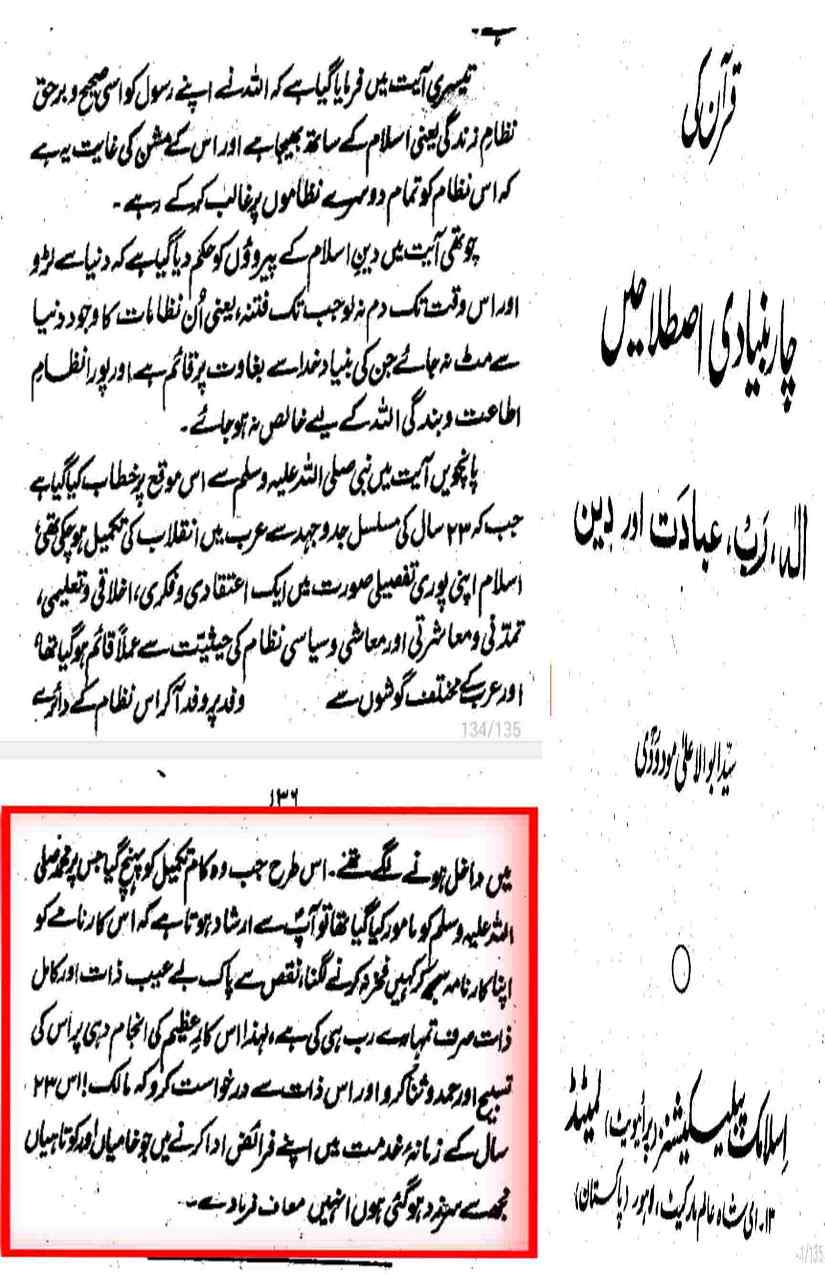 ہے۔
تیسری آیت میں فرمایا گیا ہے کہ اللہ نے اپنے رسول کو اسی صحیح و برحق
نظامِ زندگی یعنی اسلام کے ساتھ بھیجا ہے اور اس کے مشن کی غایت یہ ہے
کہ اس نظام کو تمام دوسرے نظاموں پر غالب کر کے رہے۔
چوتھی آیت میں دینِ اسلام کے پیروؤں کو حکم دیا گیا ہے کہ دنیا سے لڑو
اور اس وقت تک دم نہ لو جب تک فتنہ، یعنی اُن نظامات کا وجود دنیا
سے مٹ نہ جائے جن کی بنیاد خدا سے بغاوت پر قائم ہے اور پورا نظامِ
اطاعت و بندگی اللہ کے لیے خالص نہ ہو جائے۔
پانچویں آیت میں نبی صلی اللہ علیہ وسلم سے اس موقع پر خطاب کیا گیا ہے
جب کہ ۲۳ سال کی مسلسل جدوجہد سے عرب میں انقلاب کی تکمیل ہو چکی تھی،
اسلام اپنی پوری تفصیلی صورت میں ایک اعتقادی و فکری، اخلاقی و تعلیمی،
تمدّنی و معاشرتی اور معاشی و سیاسی نظام کی حیثیت سے عملاً قائم ہو گیا تھا،
اور عرب کے مختلف گوشوں سے وفد پر وفد آ کر اس نظام کے دائرے
134/135
۱۳۶
میں داخل ہونے لگے تھے۔ اس طرح جب وہ کام تکمیل کو پہنچ گیا جس پر محمد صلی
اللہ علیہ وسلم کو مامور کیا گیا تھا تو آپؐ سے ارشاد ہوتا ہے کہ اس کارنامے کو
اپنا کارنامہ سمجھ کر کہیں فخر نہ کرنے لگنا، نقص سے پاک بے عیب ذات اور کامل
ذات صرف تمہارے رب ہی کی ہے، لہذا اس کارِ عظیم کی انجام دہی پر اس کی
تسبیح اور حمد و ثنا کرو اور اس ذات سے درخواست کرو کہ مالک! اس ۲۳
سال کے زمانۂ خدمت میں اپنے فرائض ادا کرنے میں جو خامیاں اور کوتاہیاں
مجھ سے سرزد ہو گئی ہوں انہیں معاف فرما دے۔
قرآن کی
چار بنیادی اصطلاحیں
الٰہ، رَبْ، عبادَت اور دین
سیّد ابوالاعلیٰ مودودی
اِسلامک پبلیکیشنز (پرائیویٹ) لمیٹڈ
۱۳۔ای شاہ عالم مارکیٹ، لاہور (پاکستان)
1/135